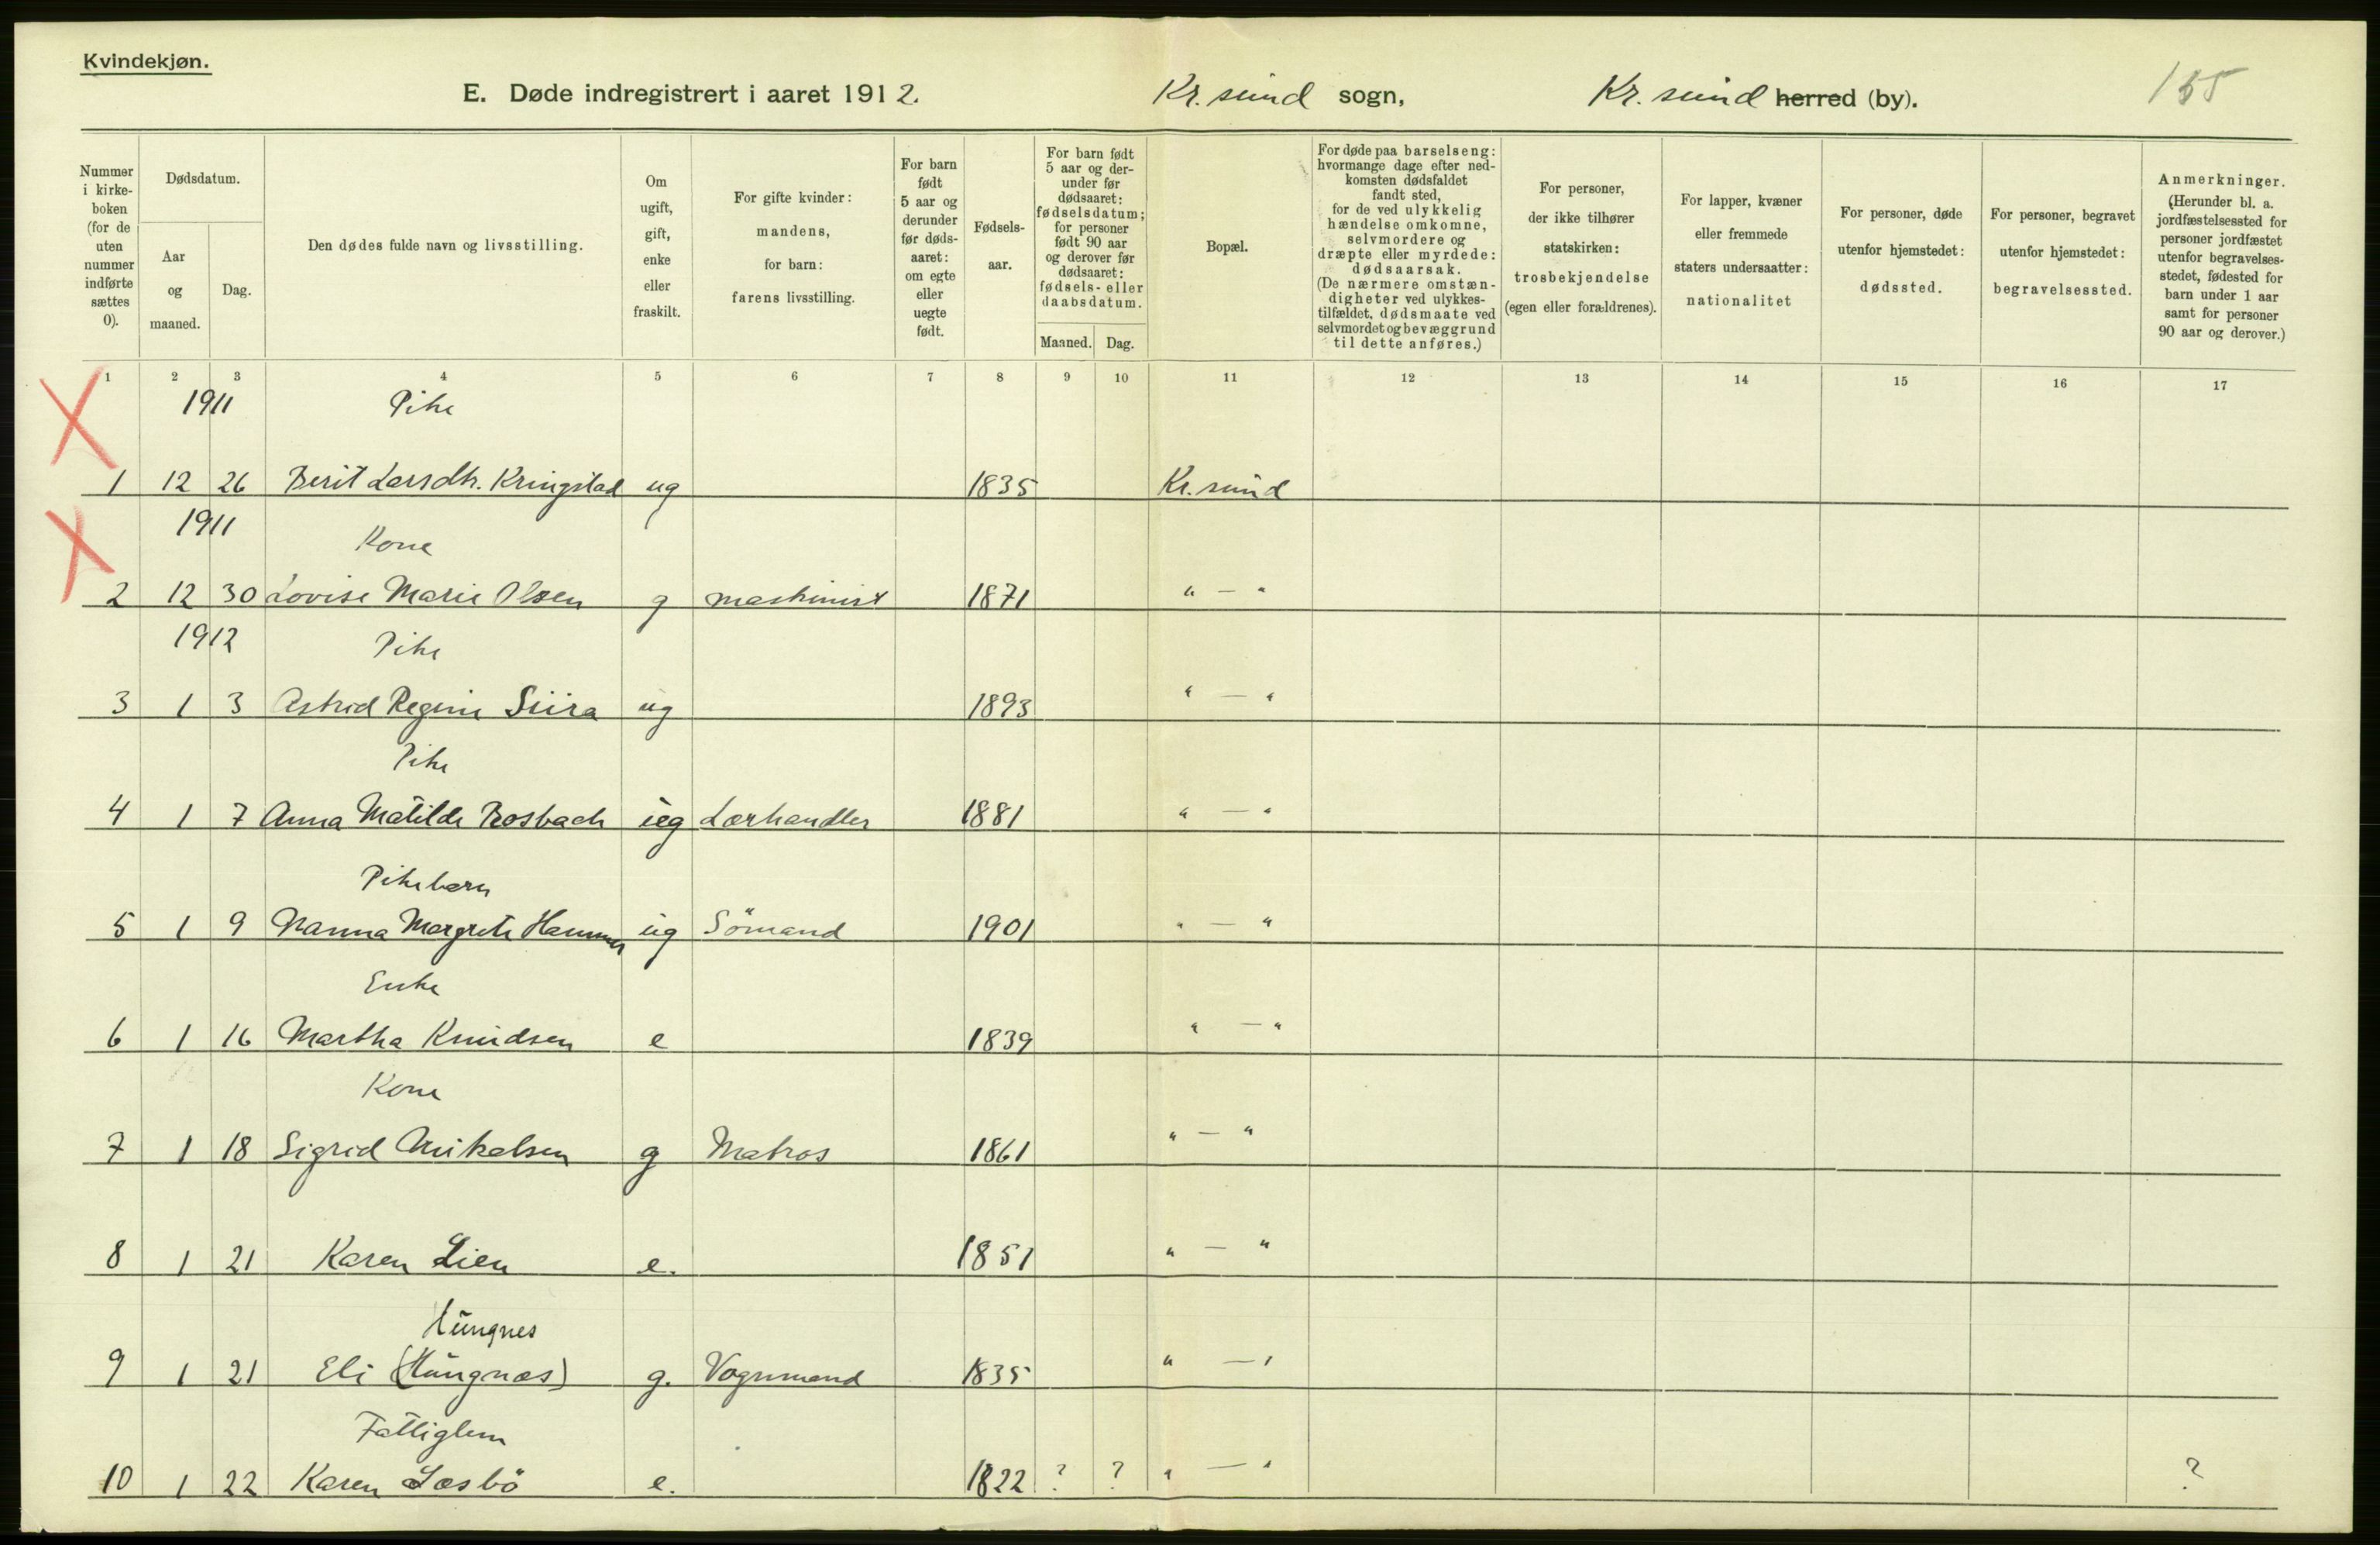 Kvindekjøn.
E. Døde indregistrert i aaret 1912. Kr. sund sogn, Kr. sund herred (by).
Nummer i kirke- boken (for de uten nummer indførte sættes 0).
Dødsdatum.
Aar og maaned.
Dag.
Den dødes fulde navn og livsstilling.
Om ugift, gift, enke eller fraskilt.
For gifte kvinder: mandens, for barn: farens livsstilling.
For barn født 5 aar og derunder før døds- aaret: om egte eller uegte født.
Fødsels- aar.
For barn født 5 aar og der- under før dødsaaret: fødselsdatum; for personer født 90 aar og derover før dødsaaret: fødsels- eller daabsdatum.
Maaned. Dag.
Bopæl.
For døde paa barselseng: hvormange dage efter ned- komsten dødsfaldet fandt sted, for de ved ulykkelig hændelse omkomne, selvmordere og dræpte eller myrdede: dødsaarsak. (De nærmere omstæn- digheter ved ulykkes- tilfældet, dødsmaate ved selvmordet og bevæggrund til dette anføres.)
For personer, der ikke tilhører statskirken: trosbekjendelse (egen eller forældrenes).
For lapper, kvæner eller fremmede staters undersaatter: nationalitet
For personer, døde utenfor hjemstedet: dødssted.
For personer, begravet utenfor hjemstedet: begravelsessted.
Anmerkninger. (Herunder bl. a. jordfæstelsessted for personer jordfæstet utenfor begravelses- stedet, fødested for barn under 1 aar samt for personer 90 aar og derover.)
1 2 3 4 5 6 7 8 9 10 11 12 13 14 15 16 17
1911 Pike
1 12 26 Berit Larsdtr. Kringstad ug 1835 Kr. sund
1911 Kone
2 12 30 Lovise Marie Olsen g maskinist 1871 " — "
1912 Pike
3 1 3 Astrid Regine Siira ug 1893 " — "
Pike
4 1 7 Anna Matilde Rosbach ug Lærhandler 1881 " — "
Pikebarn
5 1 9 Nanna Margrete Hammer ug Sömand 1901 " — "
Enke
6 1 16 Martha Knudsen e 1839 " — "
Kone
7 1 18 Sigrid Mikalsen g Matros 1861 " — "
8 1 21 Karen Lien e. 1851 " — "
Hungnes
9 1 21 Eli (Hungnæs) g. Vognmand 1835 " — "
Fattiglem
10 1 22 Karen Læsbö e. 1822 ? ? " — " ?